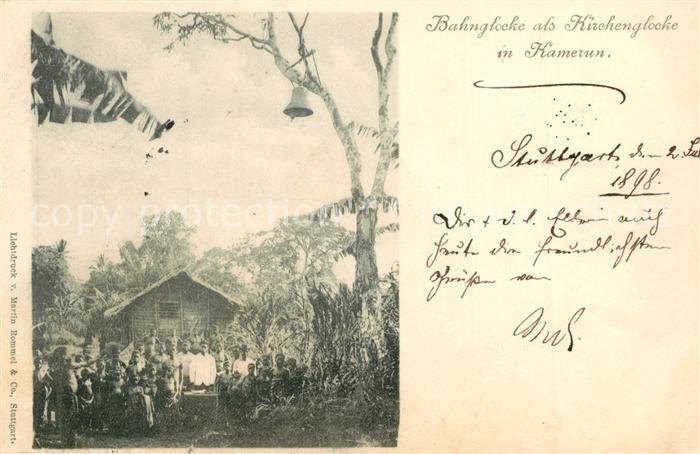 Bahnglocke als Kirchenglocke
in Kamerun.
Stuttgart den 2.
1898.
Dir & d. l. Eltern auch
heute die freundlichsten
Grüße von
Lichtdruck v. Martin Rommel & Co., Stuttgart.
copy protection